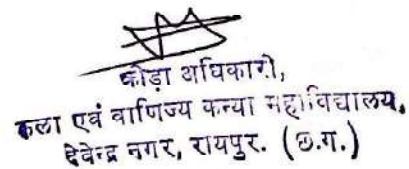 क्रीड़ा अधिकारी,
कला एवं वाणिज्य कन्या महाविद्यालय,
देवेन्द्र नगर, रायपुर. (छ.ग.)